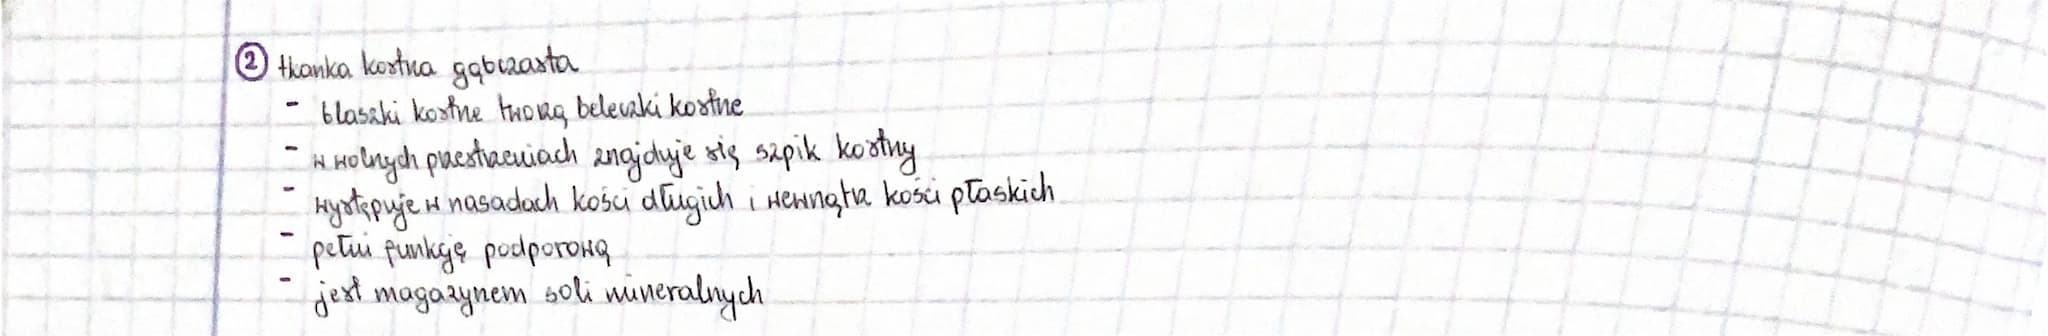 ② tkanka kostna gąbczasta
- blaszki kostne tworzą beleczki kostne
- w wolnych przestrzeniach znajduje się szpik kostny
- występuje w nasadach kości długich i wewnątrz kości płaskich
- pełni funkcję podporową
- jest magazynem soli mineralnych